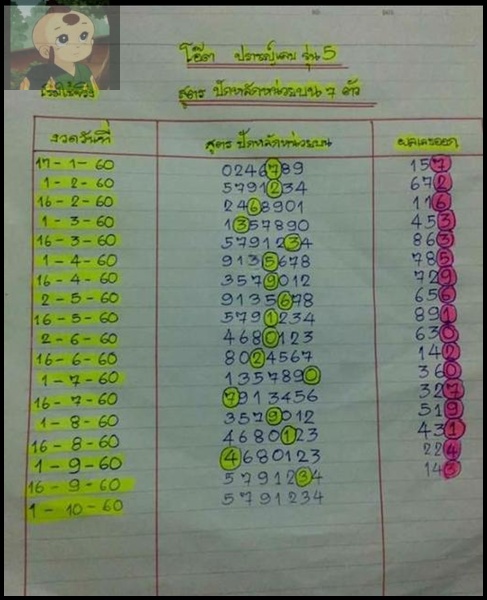 โอ๊ดา ปราชญ์เดน รุ่น 5
สูตร ปักหลักหน่วยบน 7 ตัว
งวดวันที่ สูตร ปักหลักหน่วยบน ผลเลขออก
17-1-60 0246789 157
1-2-60 5791234 672
16-2-60 2468901 116
1-3-60 1357890 453
16-3-60 5791234 863
1-4-60 9135678 785
16-4-60 3579012 729
2-5-60 9135678 656
16-5-60 5791234 891
2-6-60 4680123 630
16-6-60 8024567 142
1-7-60 1357890 360
16-7-60 7913456 327
1-8-60 3579012 519
16-8-60 4680123 431
1-9-60 4680123 224
16-9-60 5791234 143
1-10-60 5791234